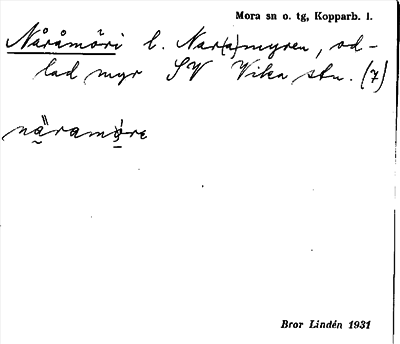 Mora sn o. tg, Kopparb. l.
Nåråmöri l. Nar(a)myren, od-
lad myr SV Vika stn. (7)
näramöre
Bror Lindén 1931